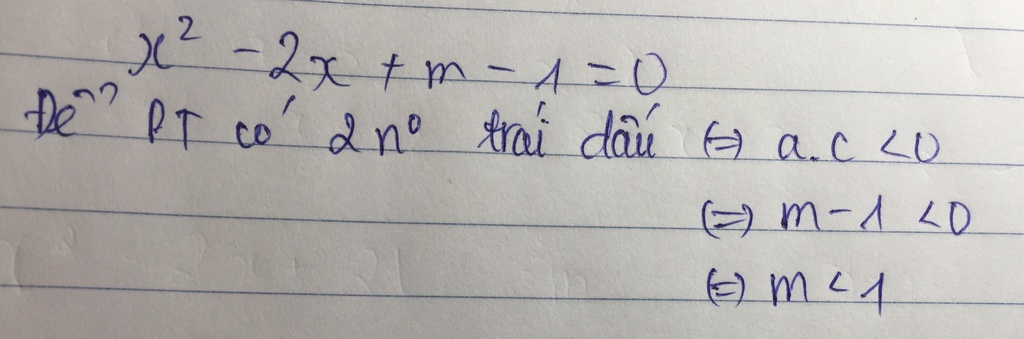 x² - 2x + m - 1 = 0
Để PT có 2 nº trái dấu (=) a.c < 0
(=) m - 1 < 0
(=) m < 1